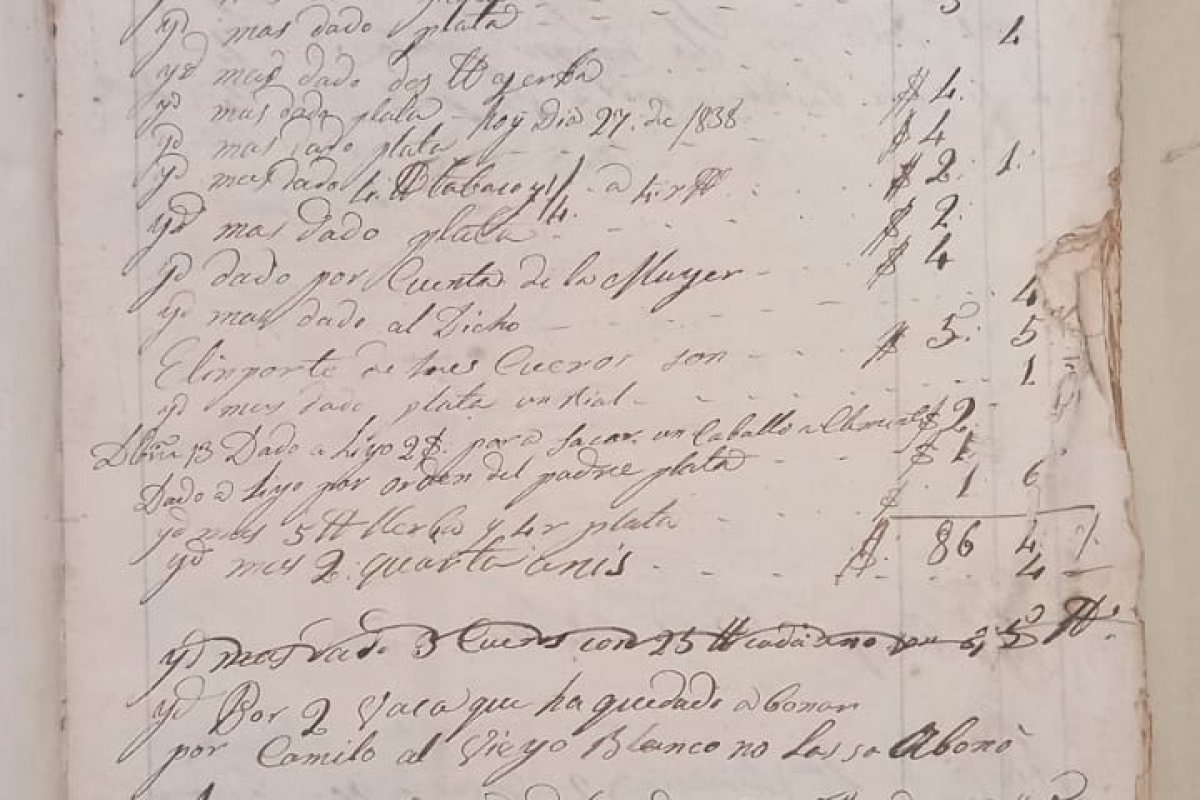 yd mas dado plata - - - 4
yd mas dado dos tt yerba - - - $ 4.
yd mas dado plata - hoy Dia 27. de 1838 $ 4
yd mas dado plata - - - - $ 2. 1.
yd mas dado 4. tt tabaco y 1/4. a 4. r tt - - $ 2.
yd mas dado plata - - - $ 4
yd dado por Cuenta de la Muyer - - - 4
yd mas dado al Dicho - - - $ 5. 5
El inporte de tres Cueros son - - - 1
yd mas dado plata un Rial - - -
13 Dado a hiyo 2 $. para sacar un Caballo a $ 2.
Dado a hiyo por orden del padre plata $ 1
yd mas 5 tt Yerba y 4 r plata - - $ 1 6
yd mas 2. quarta anis - - - $. 86 4
4
yd mas dado 3 Cueros con 25 tt cada uno 3, 5
yd Por 2 Vaca que ha quedado abonar
por Camilo al Vieyo Blanco no las a Abonò